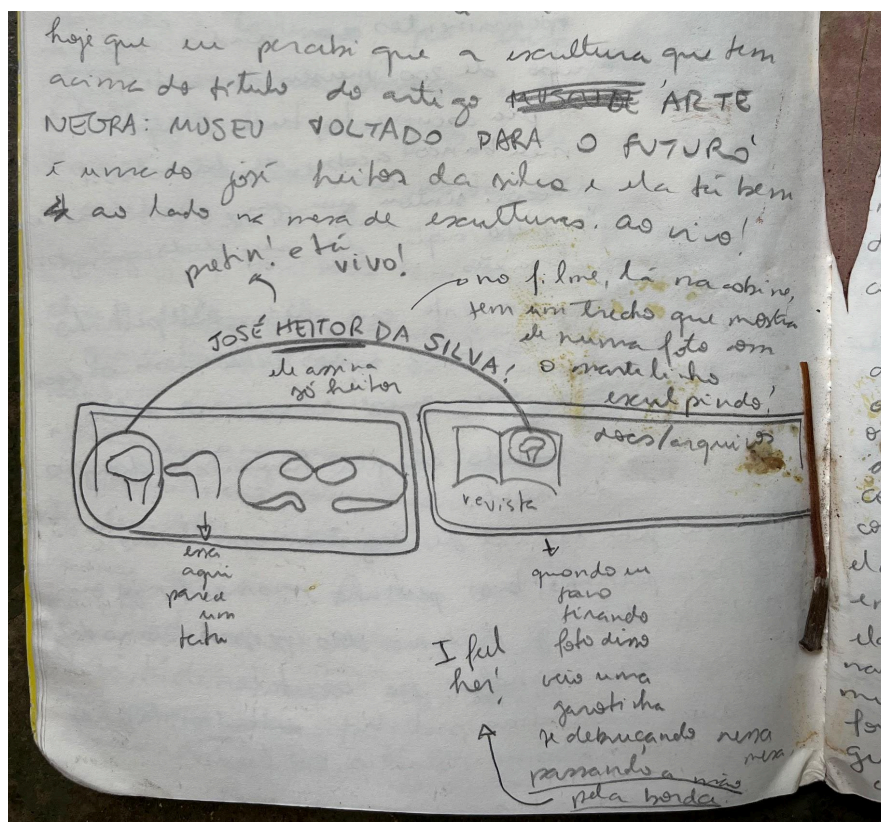 hoje que eu percebi que a escultura que tem
acima do título do artigo ARTE
NEGRA: MUSEU VOLTADO PARA O FUTURO
é uma do josé heitor da silva e ela tá bem
ao lado na mesa de esculturas. ao vivo!
pretin! e tá
vivo!
JOSÉ HEITOR DA SILVA!
ele assina
só heitor
no filme, lá na cabine,
tem um trecho que mostra
ele numa foto com
o martelinho
esculpindo!
docs/arquivos
revista
essa
aqui
parece
um
tatu
quando eu
tavo
tirando
foto disso
veio uma
garotinha
se debruçando nessa
mesa
passando a mão
pela borda.
I feel
her!